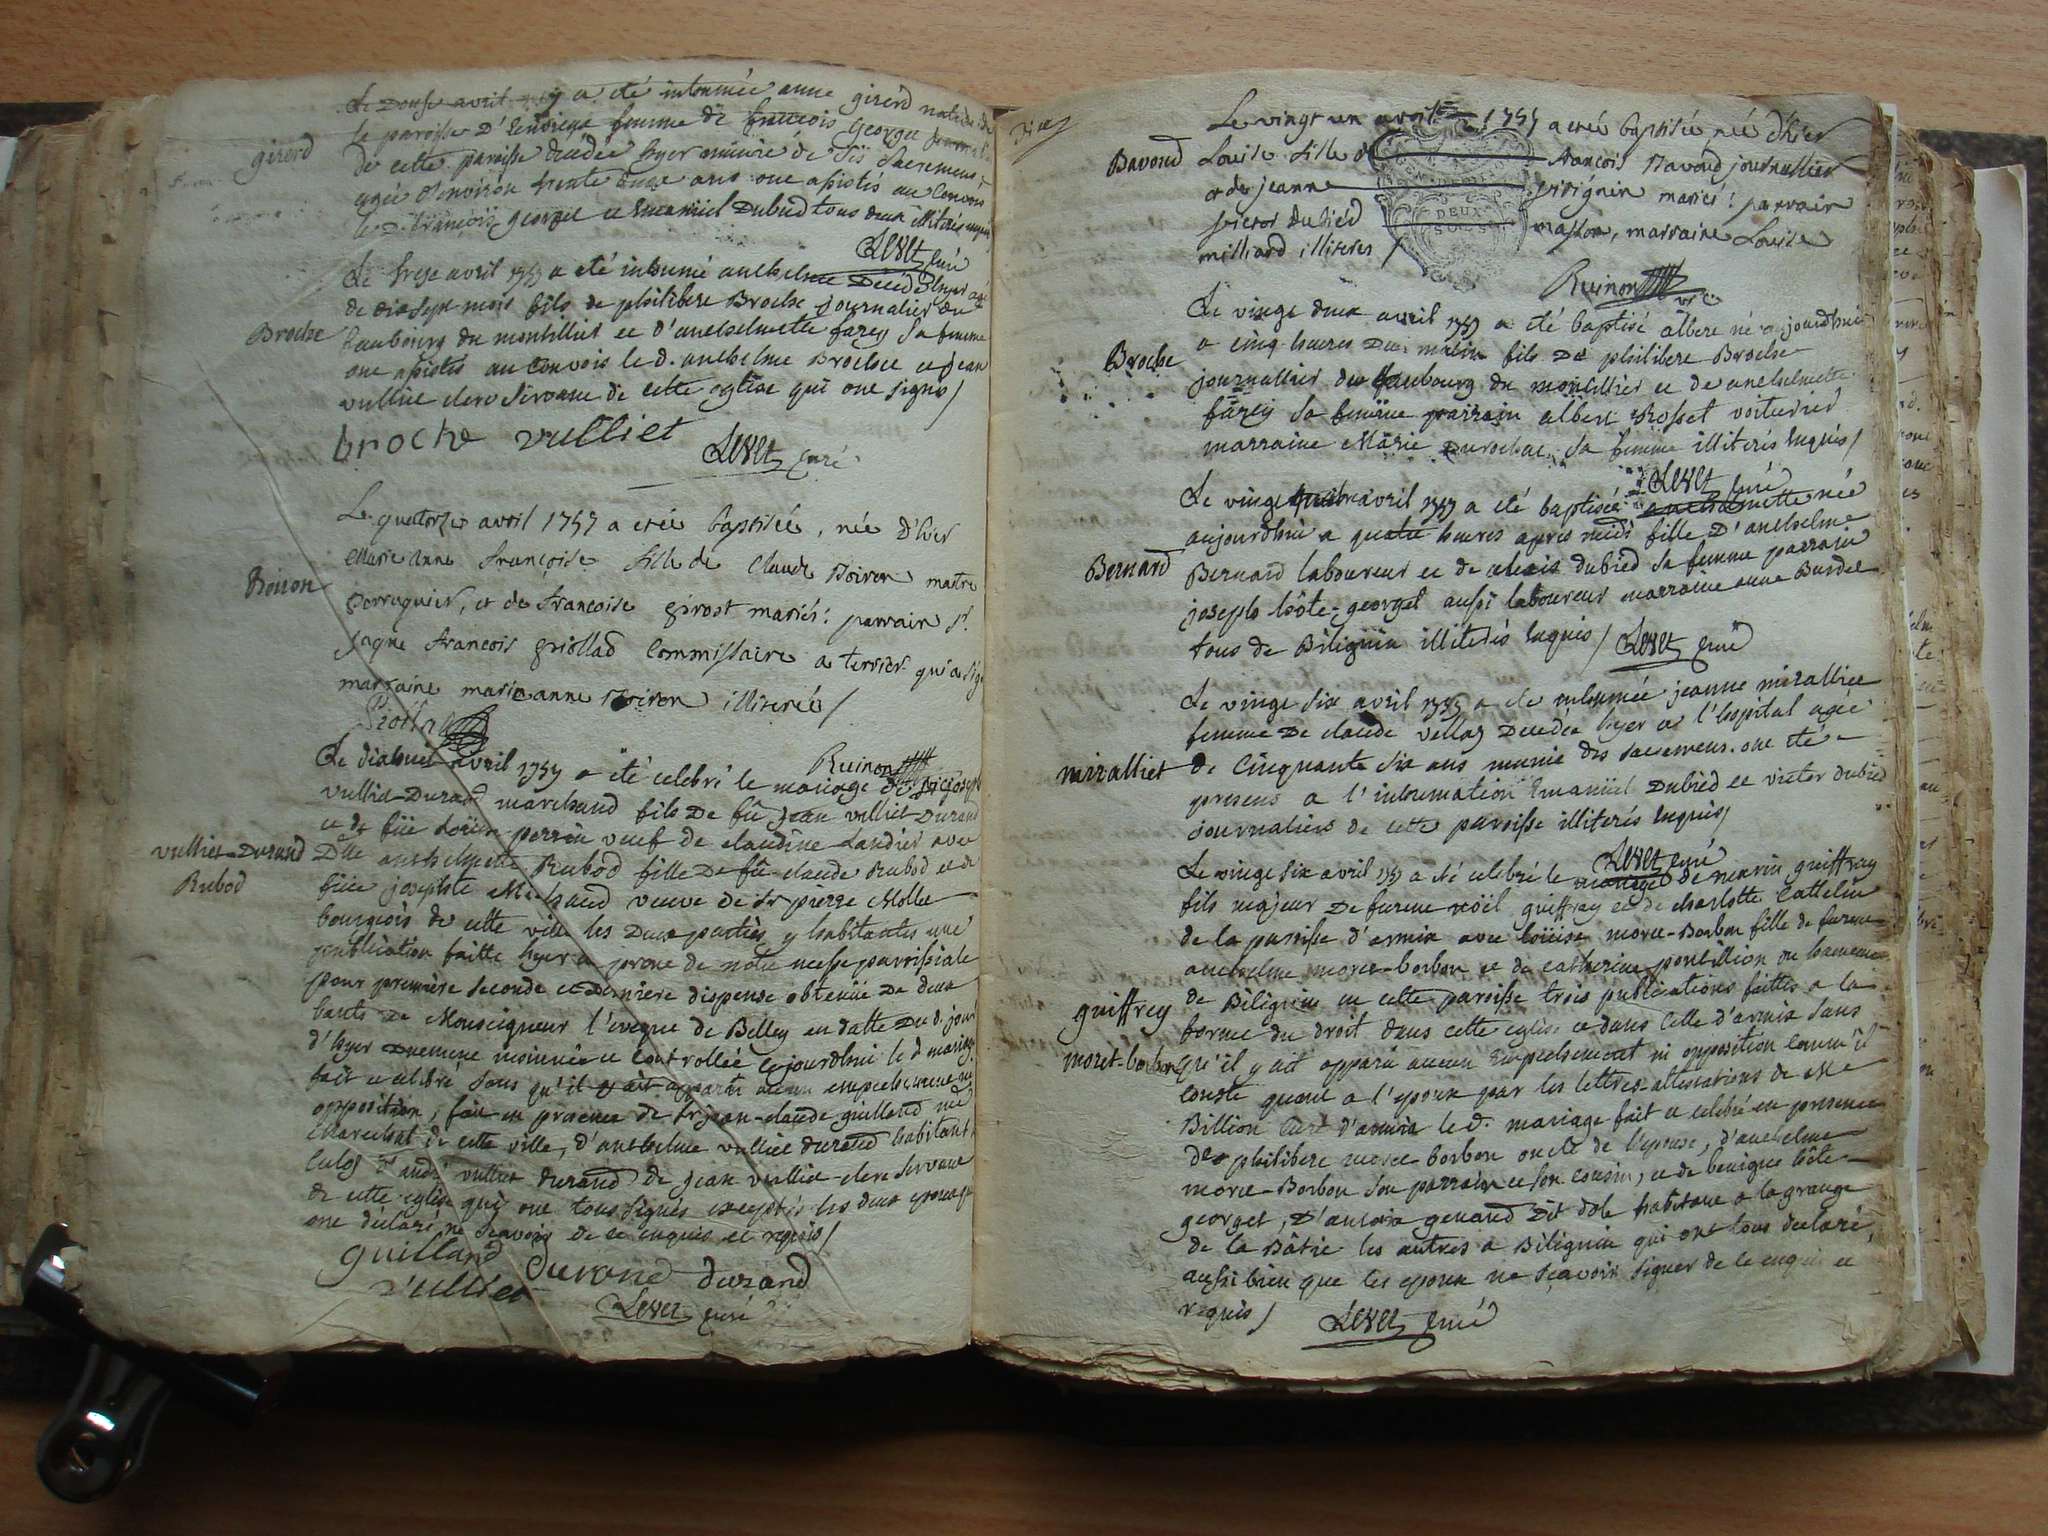 girerd
Le Douse avril 1757 a eté inhumée anne girerd native de
la paroisse D' femme de françois george
de cette paroisse decedée hyer munie de Sacremens
agée d'environ trente ans ont assistés au Convois
le D. françois george et Emanuel Dubied tous deux illiterés enquis
Levet curé
Broche
Le treze avril 1757 a eté inhumé anthelme Decedé hyer agé
de dix sept mois fils de philibert Broche journalier du
faubourg du montillier et d'anthelmette farcy sa femme
ont assistés au convois le d. anthelme Broche et jean
vulliet clerc servant de cette eglise qui ont signés /
broche vulliet
Levet curé
Boiron
Le quatorze avril 1757 a etée baptisée, née d'hier
Marie Anne françoise fille de Claude Boiron maitre
perruquier, et de françoise girost mariés: parrain Sr.
jaque françois griollad Commissaire a terrier qui a signé
marraine marie anne Boiron illiterée /
Ruinon
vulliet-Durand
Rubod
Le dixhuit avril 1757 a été celebré le mariage de joseph
vulliet-Durand marchand fils De fû jean vulliet Durand
et de füe perrin veuf de claudine Landier avec
Dlle anthelmette Rubod fille De fû claude Rubod et de
füe josephte Michaud veuve de Sr pierre Mollet
bourgeois de cette ville les Deux parties y habitantes une
publication faitte hyer a prone de notre messe parroissiale
pour première seconde et Dernière dispense obtenüe De deux
bants De Monseigneur l'eveque de Belley en datte Du d. jour
d'hyer insinuée et controllée cejourdhui le d mariage
fait et celebré sans qu'il y ait apparu aucun empechement ni
opposition, fait en presence de Sr jean-claude guilland
marechal de cette ville, d'anthelme vulliet durand habitant
Culoz d'andré vulliet durand de jean vulliet clerc servant
de cette eglise qui ont tous signés exceptés les deux epoux qui
ont déclaré ne sçavoir de ce enquis et requis /
guilland Durand durand
vulliet
Levet curé
Bavoud
Le vingt un avril 1757 a etée baptisée née d'hier
Louise fille de françois Bavoud journallier
et de jeanne mariés: parrain
victor dubied masson, marraine Louise
milliard illiteres /
DEUX
SOLS
Ruinon vic
Broche
Le vingt deux avril 1757 a eté baptisé albert né aujourdhui
a cinq heures Du matin fils De philibert Broche
journallier du faubourg du montillier et de anthelmette
farcy sa femme parrain albert Rosset voiturier
marraine Marie Durochat sa femme illiterés enquis /
Levet curé
Bernard
Le vingt quatre avril 1757 a eté baptisée anthelmette née
aujourdhui a quatre heures apres midi fille D'anthelme
Bernard laboureur et de alexis dubied sa femme parrain
joseph hôte-georget aussi laboureur marraine anne Burdet
tous de Bilignin illiterés enquis / Levet curé
mirralliet
Le vingt six avril 1757 a eté inhumée jeanne miralliet
femme De claude vellaz Decedée hyer a l'hopital agée
de Cinquante six ans munie des sacremens. ont eté
presens a l'inhumation Emanüel Dubied et victor dubied
journaliers de cette paroisse illiterés enquis /
Levet curé
guiffrey
moret-borbon
Le vingt six avril 1757 a eté celebré le mariage de marin guiffray
fils majeur De furent noël guiffray et de charlotte Cattelin
de la paroisse d'armix avec loüise moret-Borbon fille de furent
anthelme moret-borbon et de catherine pontillion du hameau
de Bilignin en cette paroisse trois publications faittes a la
forme du droit dans cette eglise et dans celle d'armix sans
qu'il y ait apparu aucun Empechement ni opposition comme il
conste quant a l'epoux par les lettres-attestations de Mre
Billion Curé d'armix le d. mariage fait et celebré en presence
de philibert moret borbon oncle de l'epouse, d'anthelme
moret-Borbon son parrain et son cousin, et de benigne hôte
georget, D'antoine genand dit dole habitant a la grange
de la Bâtie les autres a Bilignin qui ont tous declaré,
aussi bien que les epoux ne sçavoir signer de ce enquis et
requis / Levet curé